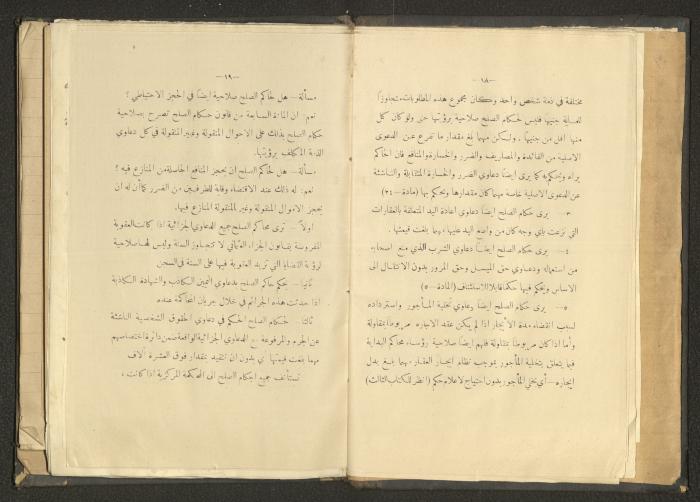 — ١٨ —
مختلفة في ذمة شخص واحد وكان مجموع هذه المطلوبات متجاوزاً
جنيهاً فليس لحكام الصلح صلاحية برؤيتها حتى ولو كان كل
منها اقل من جنيهاً . ولكن مهما بلغ مقدار ما تفرع عن الدعوى
الاصلية من الفائدة والمصاريف والضرر والخسارة والمنافع فان الحاكم
يراه ويحكم به كما يرى ايضاً دعاوي الضرر والخسارة المتقابلة والناشئة
عن الدعوى الاصلية خاصة مهما كان مقدارها ويحكم بها (مادة — ٣٤)
٣ — يرى حكام الصلح ايضاً دعاوي اعادة اليد المتعلقة بالعقارات
التي نزعت باي وجه كان من واضع اليد عليها ، مهما بلغت قيمتها .
٤ — يرى حكام الصلح ايضاً دعاوي الشرب الذي منع اصحابه
من استعماله ودعاوي حق المسيل وحق المرور بدون الانتقال الى
الاساس ويحكم فيها حكماً قابلا للاستئناف (المادة — ٥)
٥ — يرى حكام الصلح ايضاً دعاوي تخلية المأجور واسترداده
لسبب انقضاء مدة الايجار اذا لم يكن عقد الايجار مربوطاً بمقاولة
واما اذا كان مربوطاً بمقاولة فلهم ايضاً صلاحية رؤساء محاكم البداية
فيما يتعلق بتخلية المأجور بموجب نظام ايجار العقار ، مهما بلغ بدل
ايجاره — أي تخلي المأجور بدون احتياج لاعلام حكم (انظر للكتاب الثالث)
— ١٩ —
مسألة — هل لحاكم الصلح صلاحية ايضاً في الحجز الاحتياطي ؟
نعم : ان المادة السابعة من قانون حكام الصلح تصرح بصلاحية
حكام الصلح بذلك على الاحوال المنقولة وغير المنقولة في كل دعاوي
الذمة المكلف برؤيتها .
مسألة — هل لحاكم الصلح ان يحجز المنافع الحاصلة من المتنازع فيه ؟
نعم : له ذلك عند الاقتضاء وقاية للطرفين من الضرر كما أن له ان
يحجز الاموال المنقولة وغير المنقولة المنازع فيها .
اولاً — ترى محاكم الصلح جميع الدعاوي الجزائية اذا كانت العقوبة
المفروضة بقانون الجزاء العثماني لا تتجاوز السنة وليس لها صلاحية
لرؤية القضايا التي تزيد العقوبة فيها على السنة في السجن
ثانياً — يحكم حاكم الصلح بدعاوي اليمين الكاذب والشهادة الكاذبة
اذا حدثت هذه الجرائم في خلال جريان المحاكمة عنده
ثالثاً — لحكام الصلح الحكم في دعاوي الحقوق الشخصية الناشئة
عن الجرم والمرفوعة مع الدعاوي الجزائية الواقعة ضمن دائرة اختصاصهم
مهما بلغت قيمتها اي بدون ان تتقيد بمقدار فوق العشرة آلاف
تستأنف جميع احكام الصلح الى المحكمة المركزية اذا كانت :